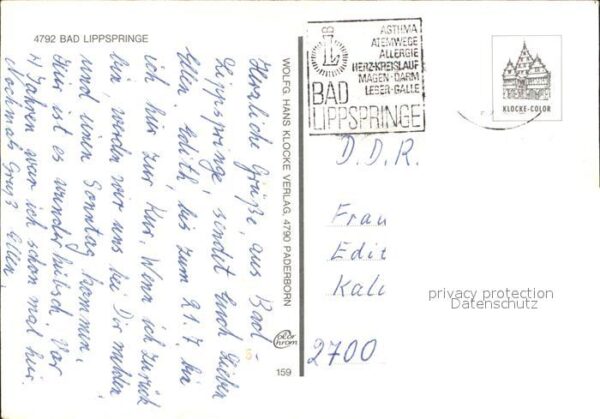 4792 BAD LIPPSPRINGE
Herzliche Grüße, aus Bad-
Lippspringe, sendet Euch Lieben
Ellen. Edith, bis zum 21.7. bin
ich hier zur Kur. Wenn ich zurück
bin, werden wir uns bei Dir melden
und einen Sonntag kommen.
Hier ist es wunderhübsch. Vor
4 Jahren war ich schon mal hier.
Nochmals Gruß Ellen.
WOLFG. HANS KLOCKE VERLAG, 4790 PADERBORN
color
chrom
159
L
ASTHMA
ATEMWEGE
ALLERGIE
HERZ-KREISLAUF
MAGEN-DARM
LEBER-GALLE
BAD
LIPPSPRINGE
KLOCKE-COLOR
D.D.R.
Frau
Edit
Kali
2700
privacy protection
Datenschutz